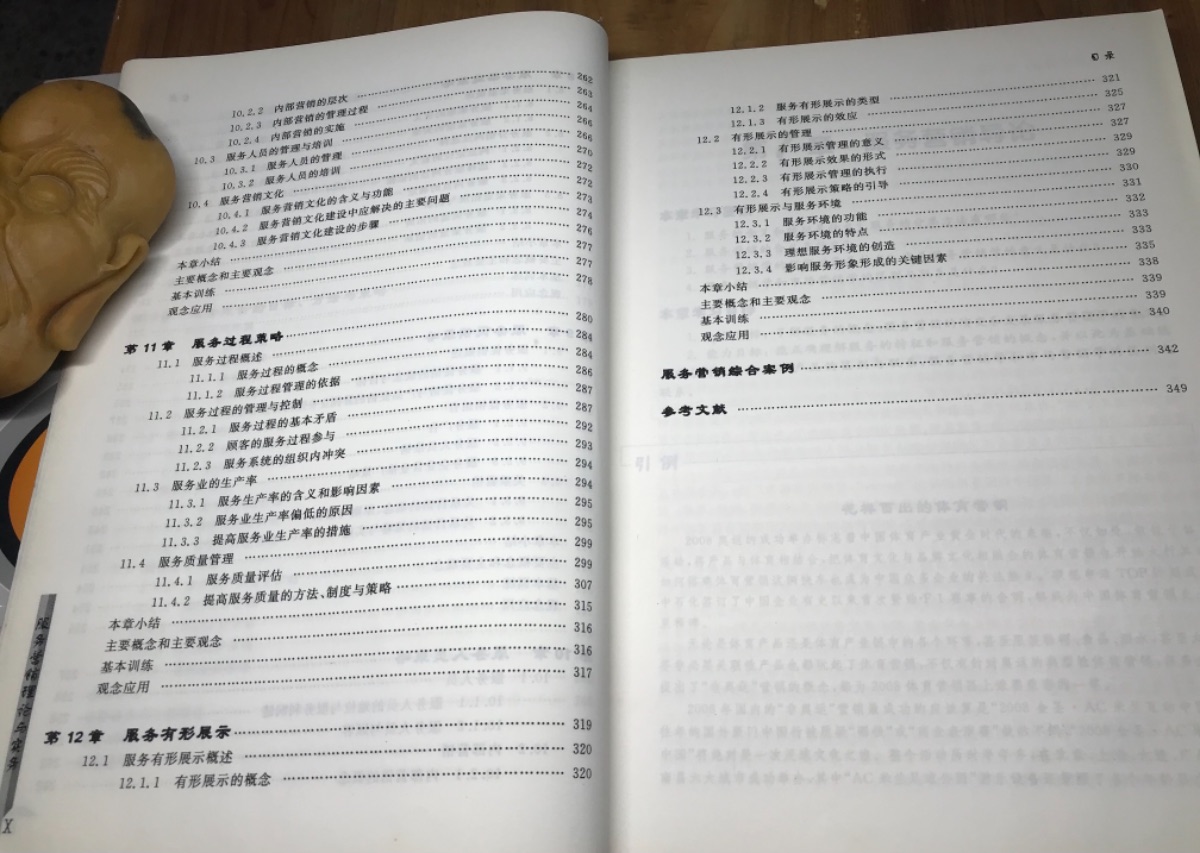 10.2.2 内部营销的层次 …… 262
10.2.3 内部营销的管理过程 …… 263
10.2.4 内部营销的实施 …… 264
10.3 服务人员的管理与培训 …… 266
10.3.1 服务人员的管理 …… 266
10.3.2 服务人员的培训 …… 270
10.4 服务营销文化 …… 272
10.4.1 服务营销文化的含义与功能 …… 272
10.4.2 服务营销文化建设中应解决的主要问题 …… 273
10.4.3 服务营销文化建设的步骤 …… 274
本章小结 …… 276
主要概念和主要观念 …… 277
基本训练 …… 277
观念应用 …… 278
第11章 服务过程策略 …… 280
11.1 服务过程概述 …… 284
11.1.1 服务过程的概念 …… 284
11.1.2 服务过程管理的依据 …… 286
11.2 服务过程的管理与控制 …… 287
11.2.1 服务过程的基本矛盾 …… 287
11.2.2 顾客的服务过程参与 …… 292
11.2.3 服务系统的组织内冲突 …… 293
11.3 服务业的生产率 …… 294
11.3.1 服务生产率的含义和影响因素 …… 294
11.3.2 服务业生产率偏低的原因 …… 295
11.3.3 提高服务业生产率的措施 …… 295
11.4 服务质量管理 …… 299
11.4.1 服务质量评估 …… 299
11.4.2 提高服务质量的方法、制度与策略 …… 307
本章小结 …… 315
主要概念和主要观念 …… 316
基本训练 …… 316
观念应用 …… 317
第12章 服务有形展示 …… 319
12.1 服务有形展示概述 …… 320
12.1.1 有形展示的概念 …… 320
服务营销理论与实务
X
目录
12.1.2 服务有形展示的类型 …… 321
12.1.3 有形展示的效应 …… 325
12.2 有形展示的管理 …… 327
12.2.1 有形展示管理的意义 …… 327
12.2.2 有形展示效果的形式 …… 329
12.2.3 有形展示管理的执行 …… 329
12.2.4 有形展示策略的引导 …… 330
12.3 有形展示与服务环境 …… 331
12.3.1 服务环境的功能 …… 332
12.3.2 服务环境的特点 …… 333
12.3.3 理想服务环境的创造 …… 333
12.3.4 影响服务形象形成的关键因素 …… 335
本章小结 …… 338
主要概念和主要观念 …… 339
基本训练 …… 339
观念应用 …… 340
服务营销综合案例 …… 342
参考文献 …… 349